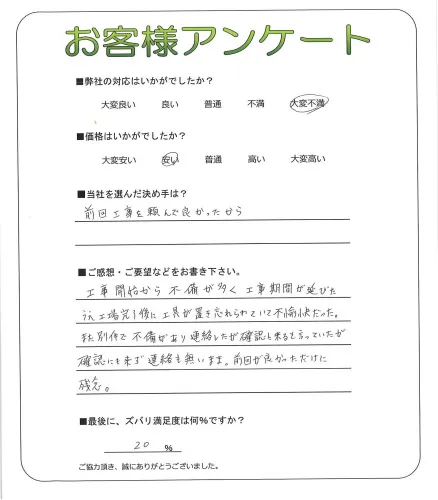 お客様アンケート
■弊社の対応はいかがでしたか？
大変良い　良い　普通　不満　大変不満
■価格はいかがでしたか？
大変安い　安い　普通　高い　大変高い
■当社を選んだ決め手は？
前回工事を頼んで良かったから
■ご感想・ご要望などをお書き下さい。
工事開始から不備が多く工事期間が延びた
うえ工場完了後に工具が置き忘れられていて不愉快だった。
また別件で不備があり連絡したが確認に来ると言っていたが
確認にも来ず連絡も無いまま。前回が良かっただけに
残念。
■最後に、ズバリ満足度は何%ですか？
20 %
ご協力頂き、誠にありがとうございました。